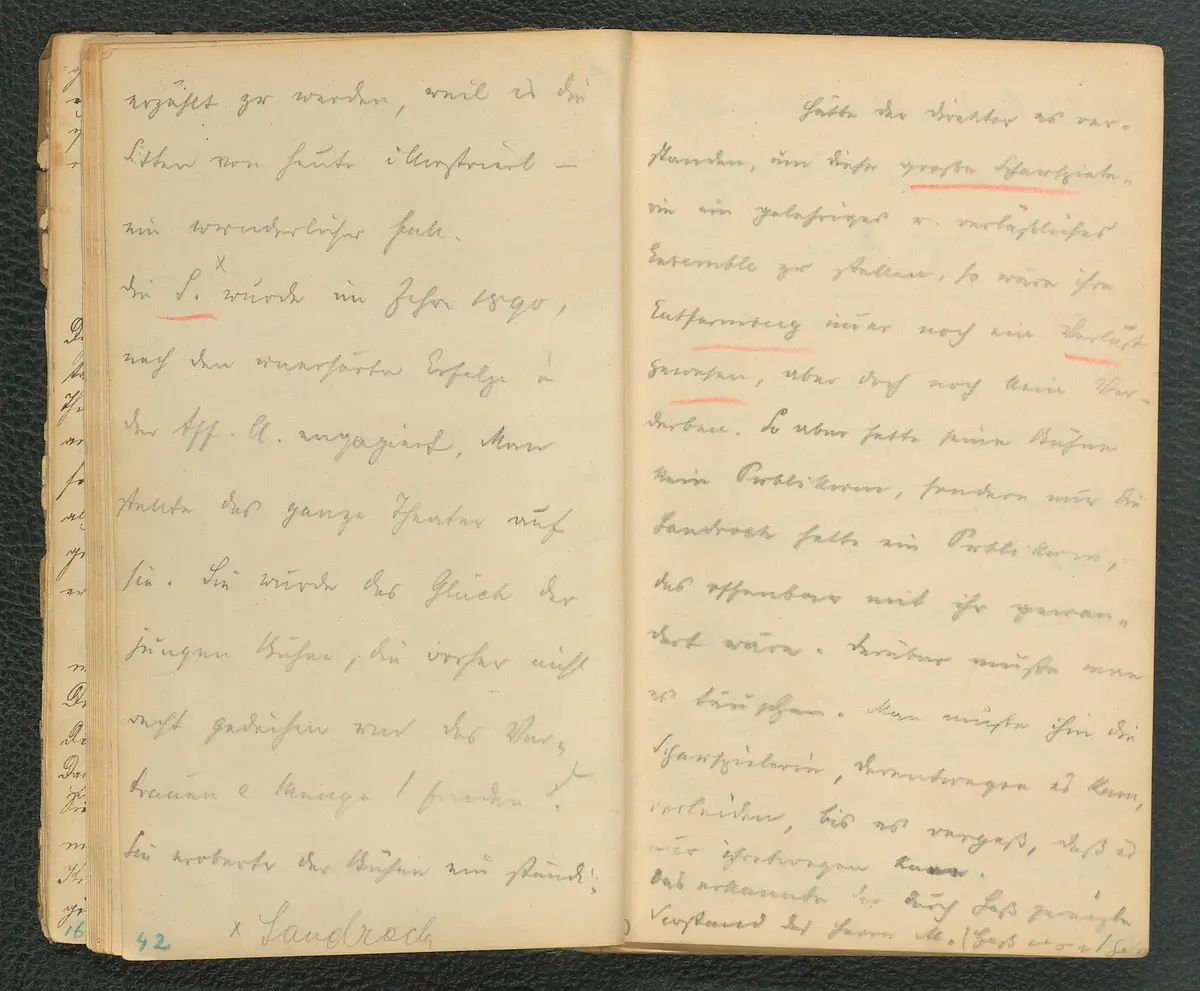 erzählt zu werden, weil es die
Sitten von heute illustriert –
ein wunderlicher Fall.
Die S.x wurde im Jahre 1890,
nach den unerhörten Erfolge
der Aff. Cl. engagiert. Man
stellte das ganze Theater auf
sie. Sie wurde das Glück der
jungen Bühne, die vorher nicht
recht gedeihen und das Ver-
trauen d Menge / finden
Sie eroberte der Bühne ein ständi-
x Sandrock
42
Hätte der Direktor es ver-
standen, um diese große Schauspiele-
rin ein gelehriges u. verläßliches
Ensemble zu stellen, so wäre ihre
Entfernung immer noch ein Verlust
gewesen, aber doch noch kein Ver-
derben. So aber hatte seine Bühne
kein Publikum, sondern nur die
Sandrock hatte ein Publikum,
das offenbar mit ihr gewan-
dert wäre. Darüber mußte man
es täuschen. Man mußte ihm die
Schauspielerin, derentwegen es kam,
verleiden, bis es vergaß, daß es
nur ihretwegen kam.
Das erkannte der durch Haß
Verstand des Herrn M. (Haß
16